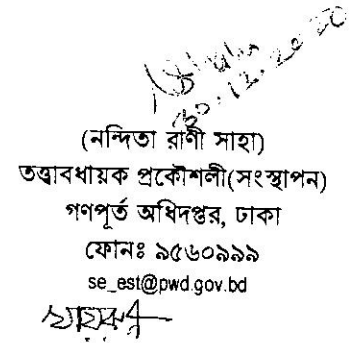 ৩০.১২.২০২০
(নন্দিতা রাণী সাহা)
তত্ত্বাবধায়ক প্রকৌশলী(সংস্থাপন)
গণপূর্ত অধিদপ্তর, ঢাকা
ফোনঃ ৯৫৬০৯৯৯
se_est@pwd.gov.bd